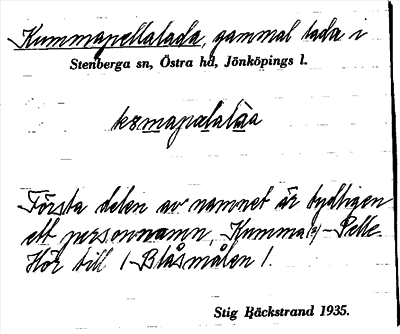 Kummapellalada, gammal lada i
Stenberga sn, Östra hd, Jönköpings l.
Första delen av namnet är tydligen
ett personnamn, Kumma(?)-Pelle.
Hör till (-Blåsmålen).
Stig Bäckstrand 1935.